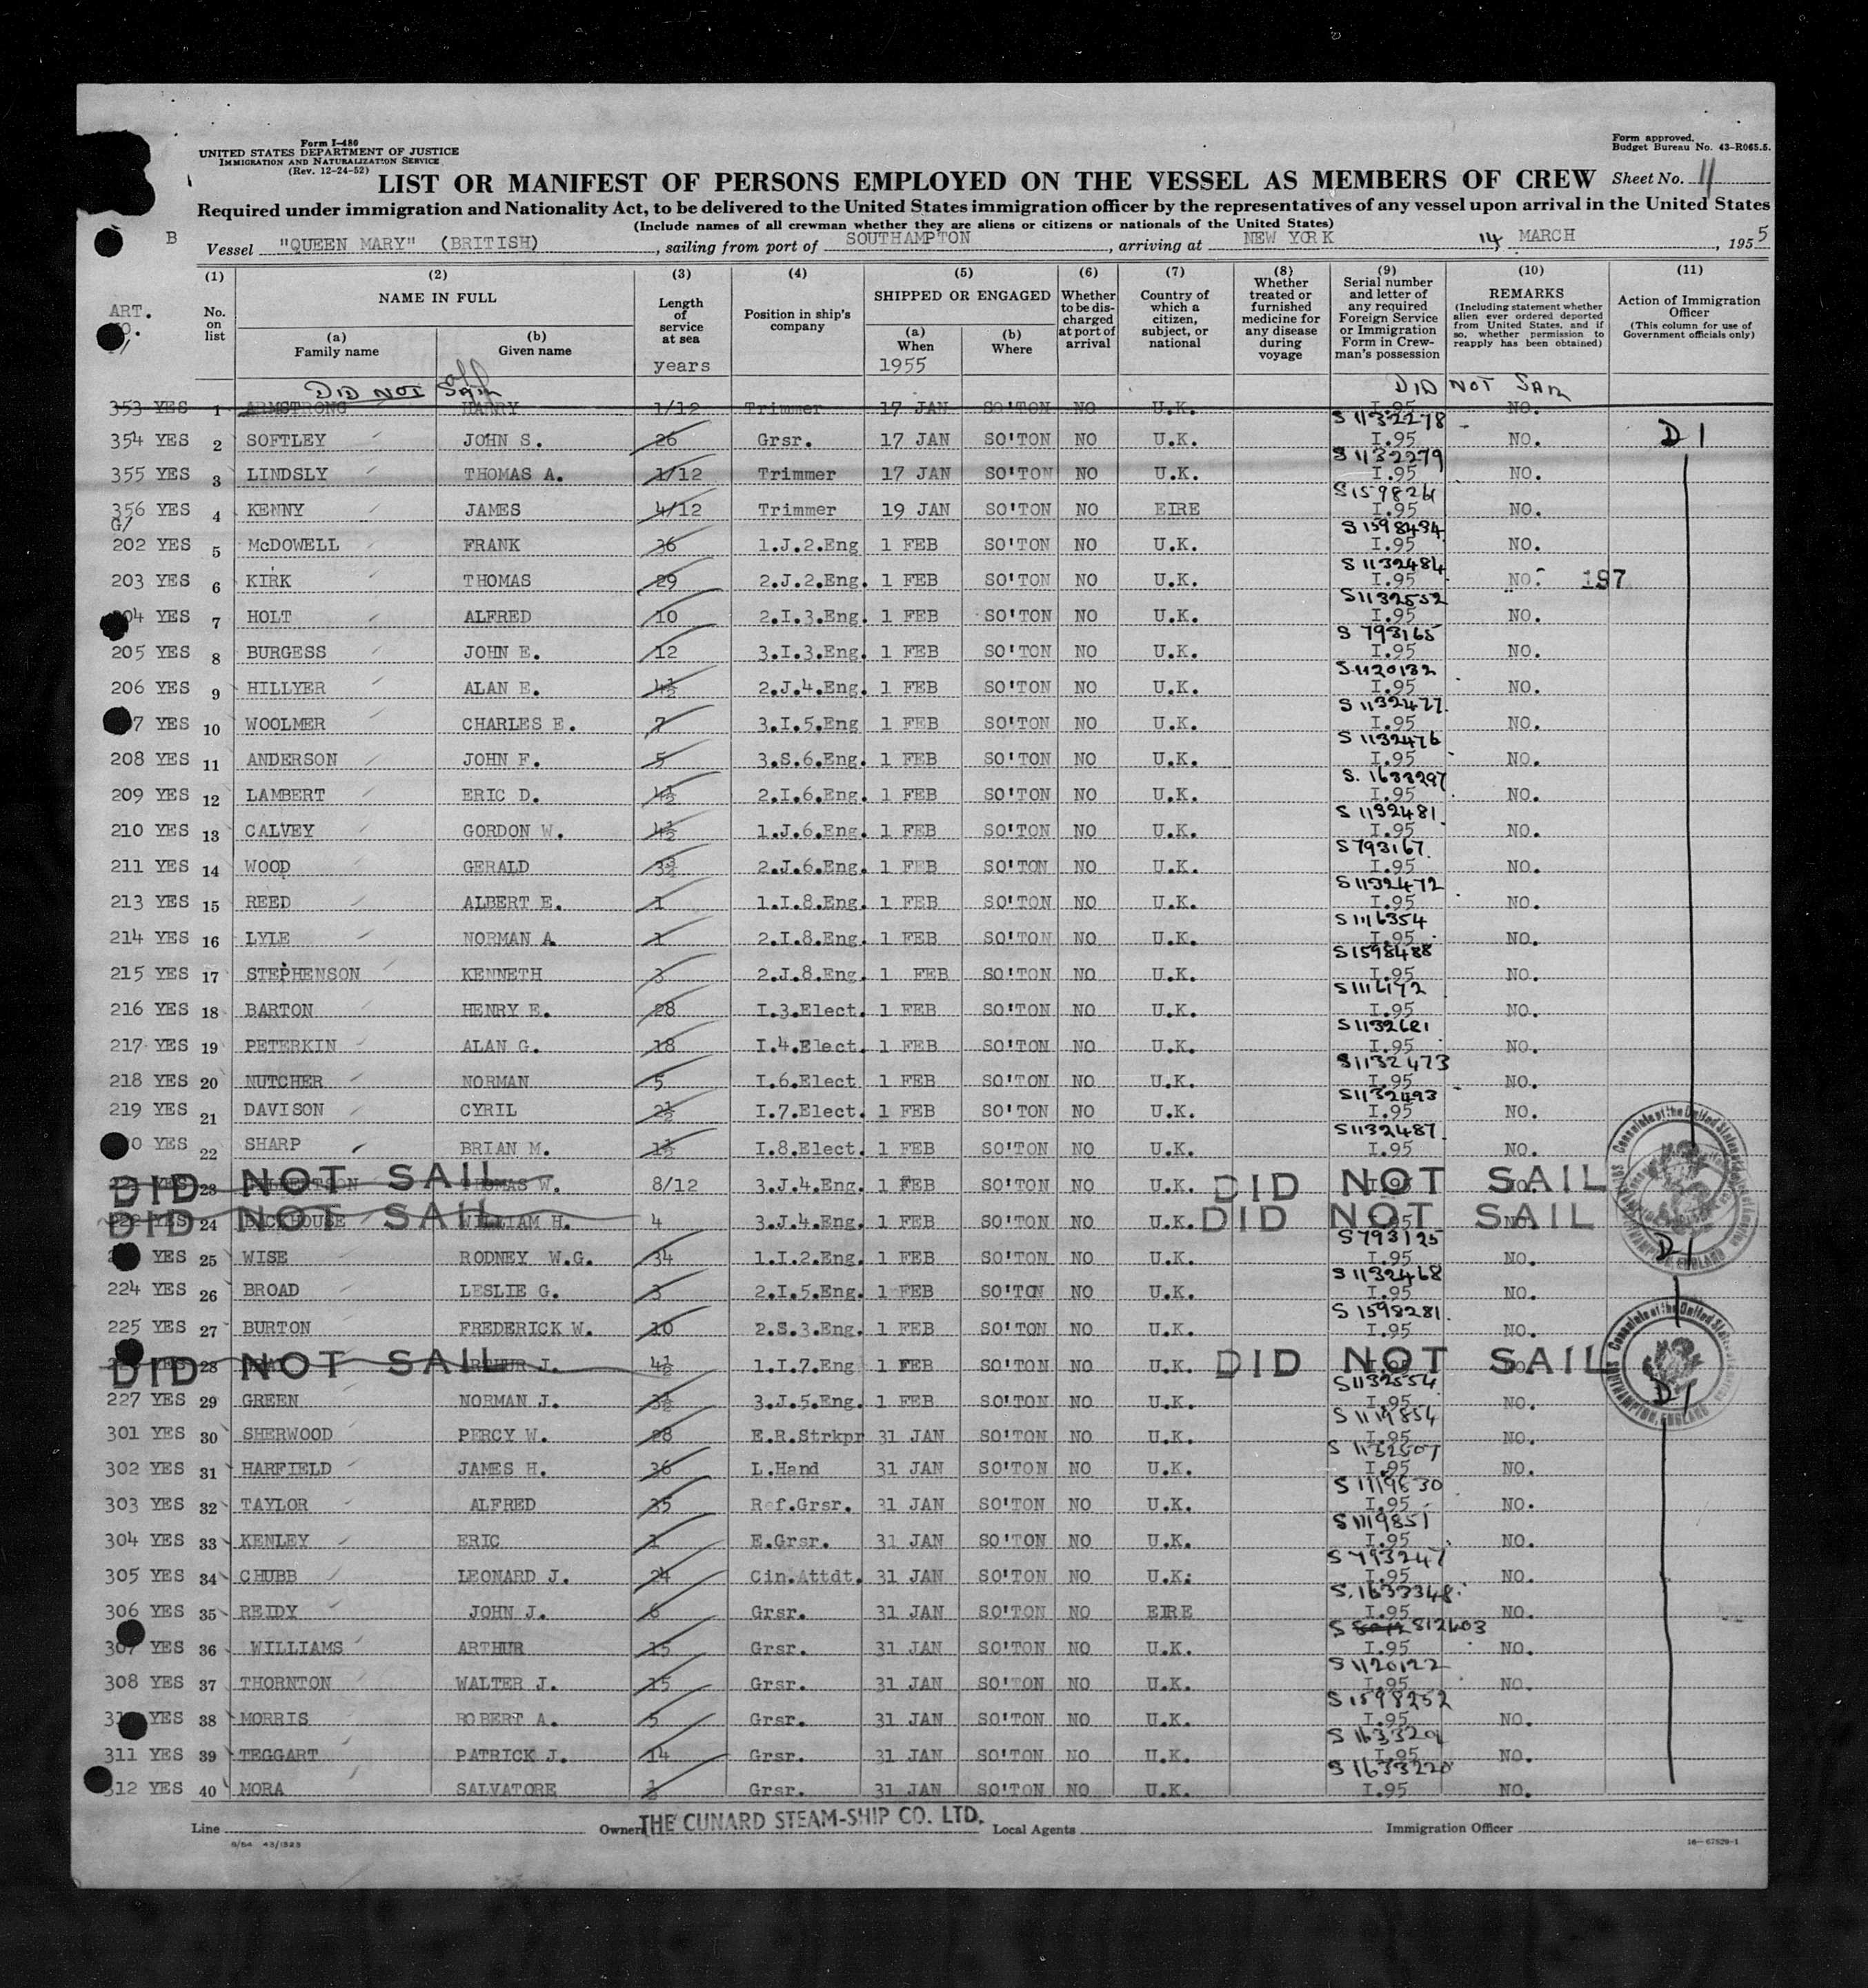 Form I-480
UNITED STATES DEPARTMENT OF JUSTICE
IMMIGRATION AND NATURALIZATION SERVICE
(Rev. 12-24-52)
Form approved.
Budget Bureau No. 43-R065.5.
LIST OR MANIFEST OF PERSONS EMPLOYED ON THE VESSEL AS MEMBERS OF CREW Sheet No. 11
Required under immigration and Nationality Act, to be delivered to the United States immigration officer by the representatives of any vessel upon arrival in the United States
(Include names of all crewman whether they are aliens or citizens or nationals of the United States)
B Vessel "QUEEN MARY" (BRITISH), sailing from port of SOUTHAMPTON, arriving at NEW YORK 14 MARCH, 1955
(1) (2) (3) (4) (5) (6) (7) (8) (9) (10) (11)
ART.
No. on list
NAME IN FULL
(a) Family name
(b) Given name
Length of service at sea
years
Position in ship's company
SHIPPED OR ENGAGED
(a) When
1955
(b) Where
Whether to be discharged at port of arrival
Country of which a citizen, subject, or national
Whether treated or furnished medicine for any disease during voyage
Serial number and letter of any required Foreign Service or Immigration Form in Crewman's possession
REMARKS
(Including statement whether alien ever ordered deported from United States, and if so, whether permission to reapply has been obtained)
Action of Immigration Officer
(This column for use of Government officials only)
DID NOT SAIL DID NOT SAIL
353 YES 1 ARMSTRONG HARRY 1/12 Trimmer 17 JAN SO'TON NO U.K. I.95 NO.
S 1132278
354 YES 2 SOFTLEY JOHN S. 26 Grsr. 17 JAN SO'TON NO U.K. I.95 NO. D 1
S 1132279
355 YES 3 LINDSLY THOMAS A. 1/12 Trimmer 17 JAN SO'TON NO U.K. I.95 NO.
356 YES 4 KENNY JAMES 4/12 Trimmer 19 JAN SO'TON NO EIRE I.95 NO.
G/
S 1598494
202 YES 5 McDOWELL FRANK 36 1.J.2.Eng 1 FEB SO'TON NO U.K. I.95 NO.
S 1132484
203 YES 6 KIRK THOMAS 29 2.J.2.Eng. 1 FEB SO'TON NO U.K. I.95 NO. 197
S1132552
04 YES 7 HOLT ALFRED 10 2.I.3.Eng. 1 FEB SO'TON NO U.K. I.95 NO.
S 793165
205 YES 8 BURGESS JOHN E. 12 3.I.3.Eng. 1 FEB SO'TON NO U.K. I.95 NO.
S1120132
206 YES 9 HILLYER ALAN E. 4½ 2.J.4.Eng. 1 FEB SO'TON NO U.K. I.95 NO.
S 1132477
7 YES 10 WOOLMER CHARLES E. 7 3.I.5.Eng 1 FEB SO'TON NO U.K. I.95 NO.
S 1132476
208 YES 11 ANDERSON JOHN F. 5 3.S.6.Eng. 1 FEB SO'TON NO U.K. I.95 NO.
S. 1633297
209 YES 12 LAMBERT ERIC D. 4½ 2.I.6.Eng. 1 FEB SO'TON NO U.K. I.95 NO.
S 1132481
210 YES 13 CALVEY GORDON W. 4½ 1.J.6.Eng. 1 FEB SO'TON NO U.K. I.95 NO.
S793167
211 YES 14 WOOD GERALD 2.J.6.Eng. 1 FEB SO'TON NO U.K. I.95 NO.
S1132472
213 YES 15 REED ALBERT E. 1 1.I.8.Eng. 1 FEB SO'TON NO U.K. I.95 NO.
S1116354
214 YES 16 LYLE NORMAN A. 1 2.I.8.Eng. 1 FEB SO'TON NO U.K. I.95 NO.
S1598488
215 YES 17 STEPHENSON KENNETH 3 2.J.8.Eng. 1 FEB SO'TON NO U.K. I.95 NO.
S1116172
216 YES 18 BARTON HENRY E. 28 I.3.Elect. 1 FEB SO'TON NO U.K. I.95 NO.
217 YES 19 PETERKIN ALAN G. 18 I.4.Elect. 1 FEB SO'TON NO U.K. I.95 NO.
S1132473
218 YES 20 NUTCHER NORMAN 5 I.6.Elect 1 FEB SO'TON NO U.K. I.95 NO.
S1132493
219 YES 21 DAVISON CYRIL 2½ I.7.Elect. 1 FEB SO'TON NO U.K. I.95 NO.
S1132487
0 YES 22 SHARP BRIAN M. 1½ I.8.Elect. 1 FEB SO'TON NO U.K. I.95 NO.
DID NOT SAIL 23 W. 8/12 3.J.4.Eng. 1 FEB SO'TON NO U.K. DID NOT SAIL
DID NOT SAIL 24 BACKHOUSE WILLIAM H. 4 3.J.4.Eng. 1 FEB SO'TON NO U.K. DID NOT SAIL
S793125
YES 25 WISE RODNEY W.G. 34 1.I.2.Eng. 1 FEB SO'TON NO U.K. I.95 NO. D 1
S 1132468
224 YES 26 BROAD LESLIE G. 3 2.I.5.Eng. 1 FEB SO'TON NO U.K. I.95 NO.
S 1598281
225 YES 27 BURTON FREDERICK W. 10 2.S.3.Eng. 1 FEB SO'TON NO U.K. I.95 NO.
DID NOT SAIL 28 ARTHUR J. 4½ 1.I.7.Eng 1 FEB SO'TON NO U.K. DID NOT SAIL
S1132554
227 YES 29 GREEN NORMAN J. 3½ 3.J.5.Eng. 1 FEB SO'TON NO U.K. I.95 NO. D 1
S 1119854
301 YES 30 SHERWOOD PERCY W. 28 E.R.Strkpr 31 JAN SO'TON NO U.K. I.95 NO.
S 1132507
302 YES 31 HARFIELD JAMES H. 36 L.Hand 31 JAN SO'TON NO U.K. I.95 NO.
303 YES 32 TAYLOR ALFRED 35 Ref.Grsr. 31 JAN SO'TON NO U.K. I.95 NO.
S 1119851
304 YES 33 KENLEY ERIC 1 E.Grsr. 31 JAN SO'TON NO U.K. I.95 NO.
S 793247
305 YES 34 CHUBB LEONARD J. 24 Cin.Attdt. 31 JAN SO'TON NO U.K: I.95 NO.
S. 1633348
306 YES 35 REIDY JOHN J. 6 Grsr. 31 JAN SO'TON NO EIRE I.95 NO.
S 812603
307 YES 36 WILLIAMS ARTHUR 15 Grsr. 31 JAN SO'TON NO U.K. I.95 NO.
S 1120122
308 YES 37 THORNTON WALTER J. 15 Grsr. 31 JAN SO'TON NO U.K. I.95 NO.
S 1598252
YES 38 MORRIS ROBERT A. 5 Grsr. 31 JAN SO'TON NO U.K. I.95 NO.
311 YES 39 TEGGART PATRICK J. 14 Grsr. 31 JAN SO'TON NO U.K. I.95 NO.
S 1633220
312 YES 40 MORA SALVATORE ½ Grsr. 31 JAN SO'TON NO U.K. I.95 NO.
Line Owners THE CUNARD STEAM-SHIP CO. LTD. Local Agents Immigration Officer
16—67829-1